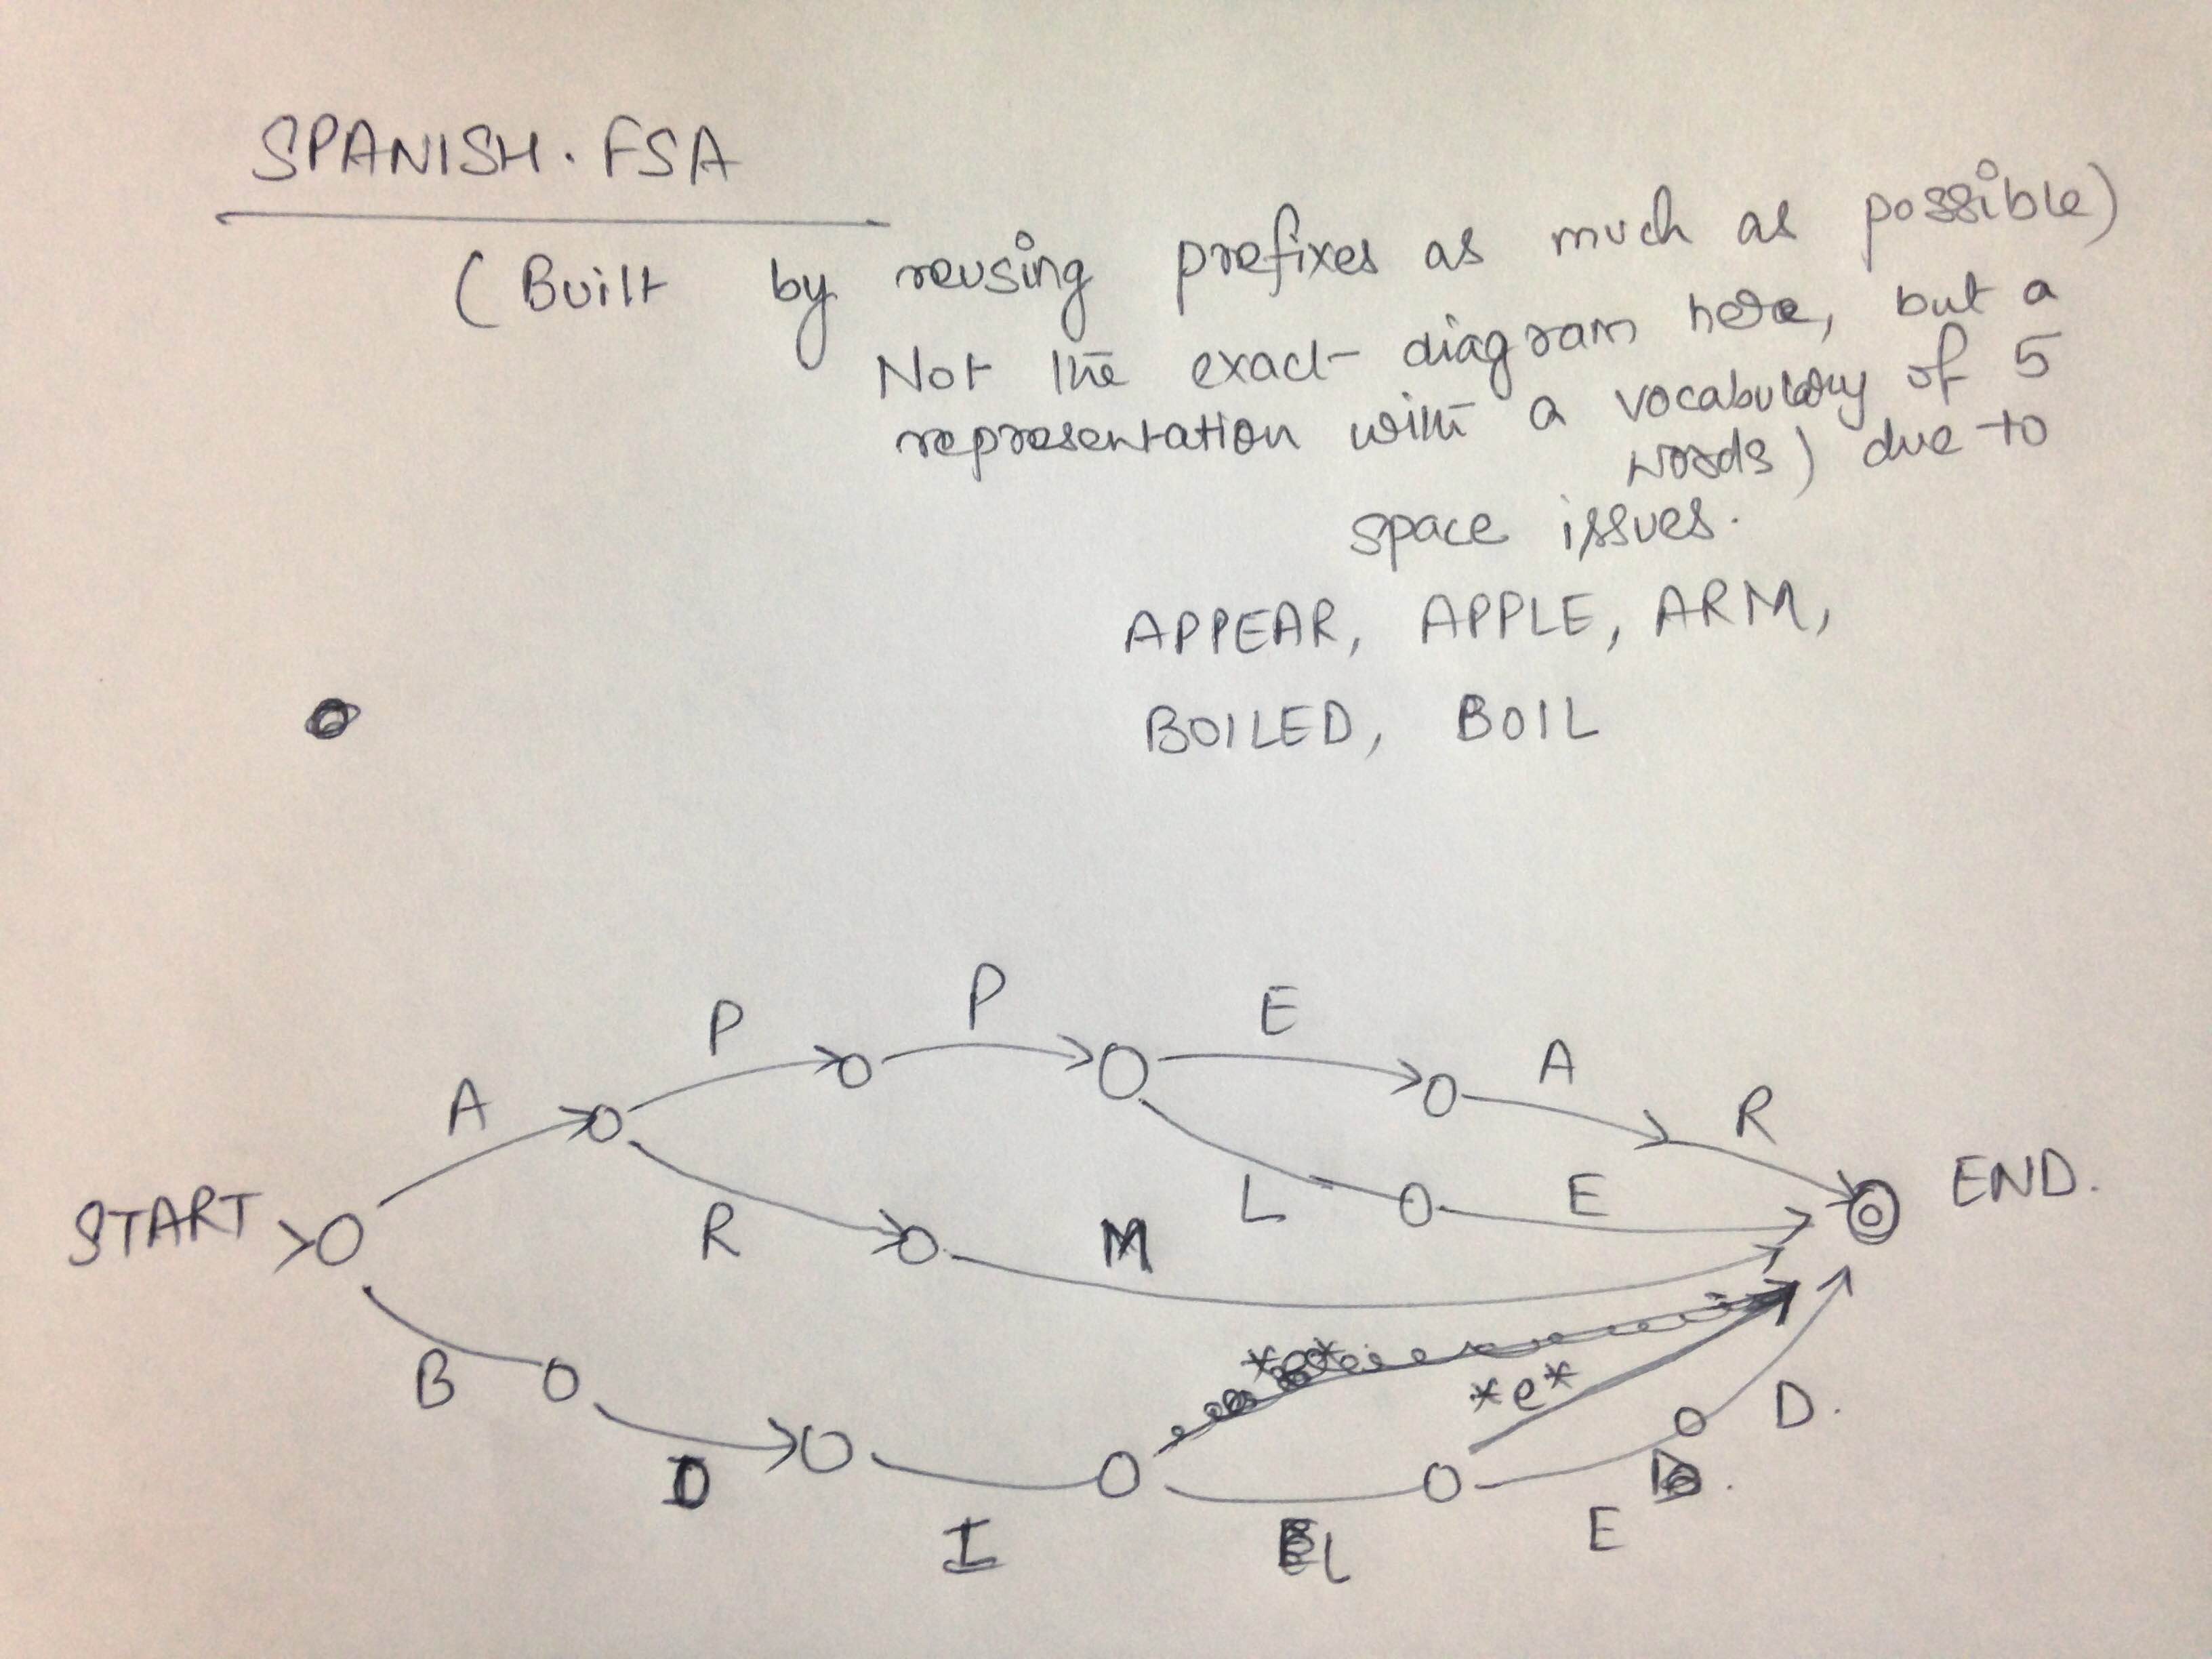 SPANISH. FSA
(Built by reusing prefixes as much as possible)
Not the exact diagram here, but a
representation with a vocabulary of 5
words) due to
space issues.
APPEAR, APPLE, ARM,
BOILED, BOIL
P P E
A
A R
START END.
R M L E
*e*
B D.
I L E